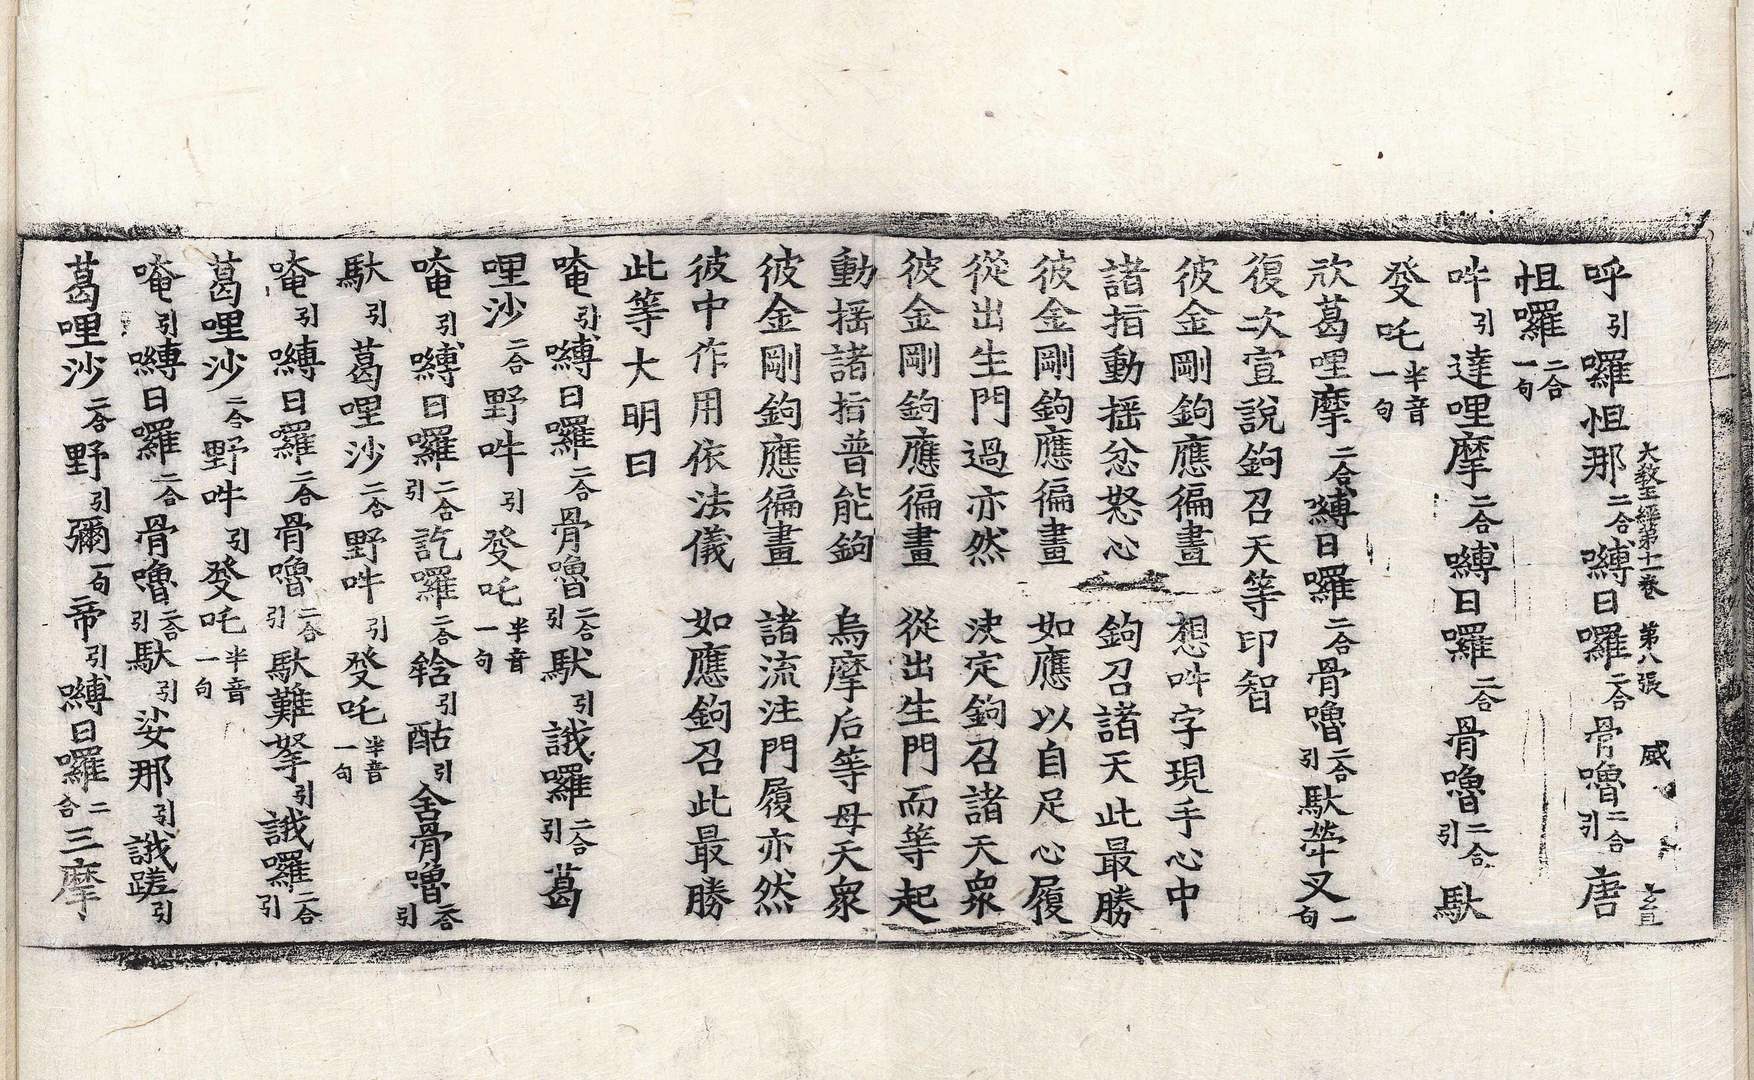 大教王經第十一卷　第八張　威
呼引囉怛那二合嚩日囉二合骨嚕二合引唐
怛囉二合一句
吽引達哩摩二合嚩日囉二合骨嚕二合引馱
發吒半音一句
欣葛哩摩二合嚩日囉二合骨嚕二合引馱犖叉一句
復次宣說鉤召天等印智
彼金剛鉤應徧畫　想吽字現手心中
諸指動搖忿怒心　鉤召諸天此最勝
彼金剛鉤應徧畫　如應以自足心履
從出生門過亦然　決定鉤召諸天衆
彼金剛鉤應徧畫　從出生門而等起
動搖諸指普能鉤　烏摩后等母天衆
彼金剛鉤應徧畫　諸流注門履亦然
彼中作用依法儀　如應鉤召此最勝
此等大明曰
唵引嚩日囉二合骨嚕二合引馱引誐囉二合引葛
哩沙二合野吽引發吒半音一句
唵引嚩日囉二合引訖囉二合轄引酤引舍骨嚕二合引
馱引葛哩沙二合野吽引發吒半音一句
唵引嚩日囉二合骨嚕二合引馱難拏引誐囉二合引
葛哩沙二合野吽引發吒半音一句
唵引嚩日囉二合骨嚕二合引馱引娑那引誐蹉引
葛哩沙二合野引彌一句帝引嚩日囉二合三摩